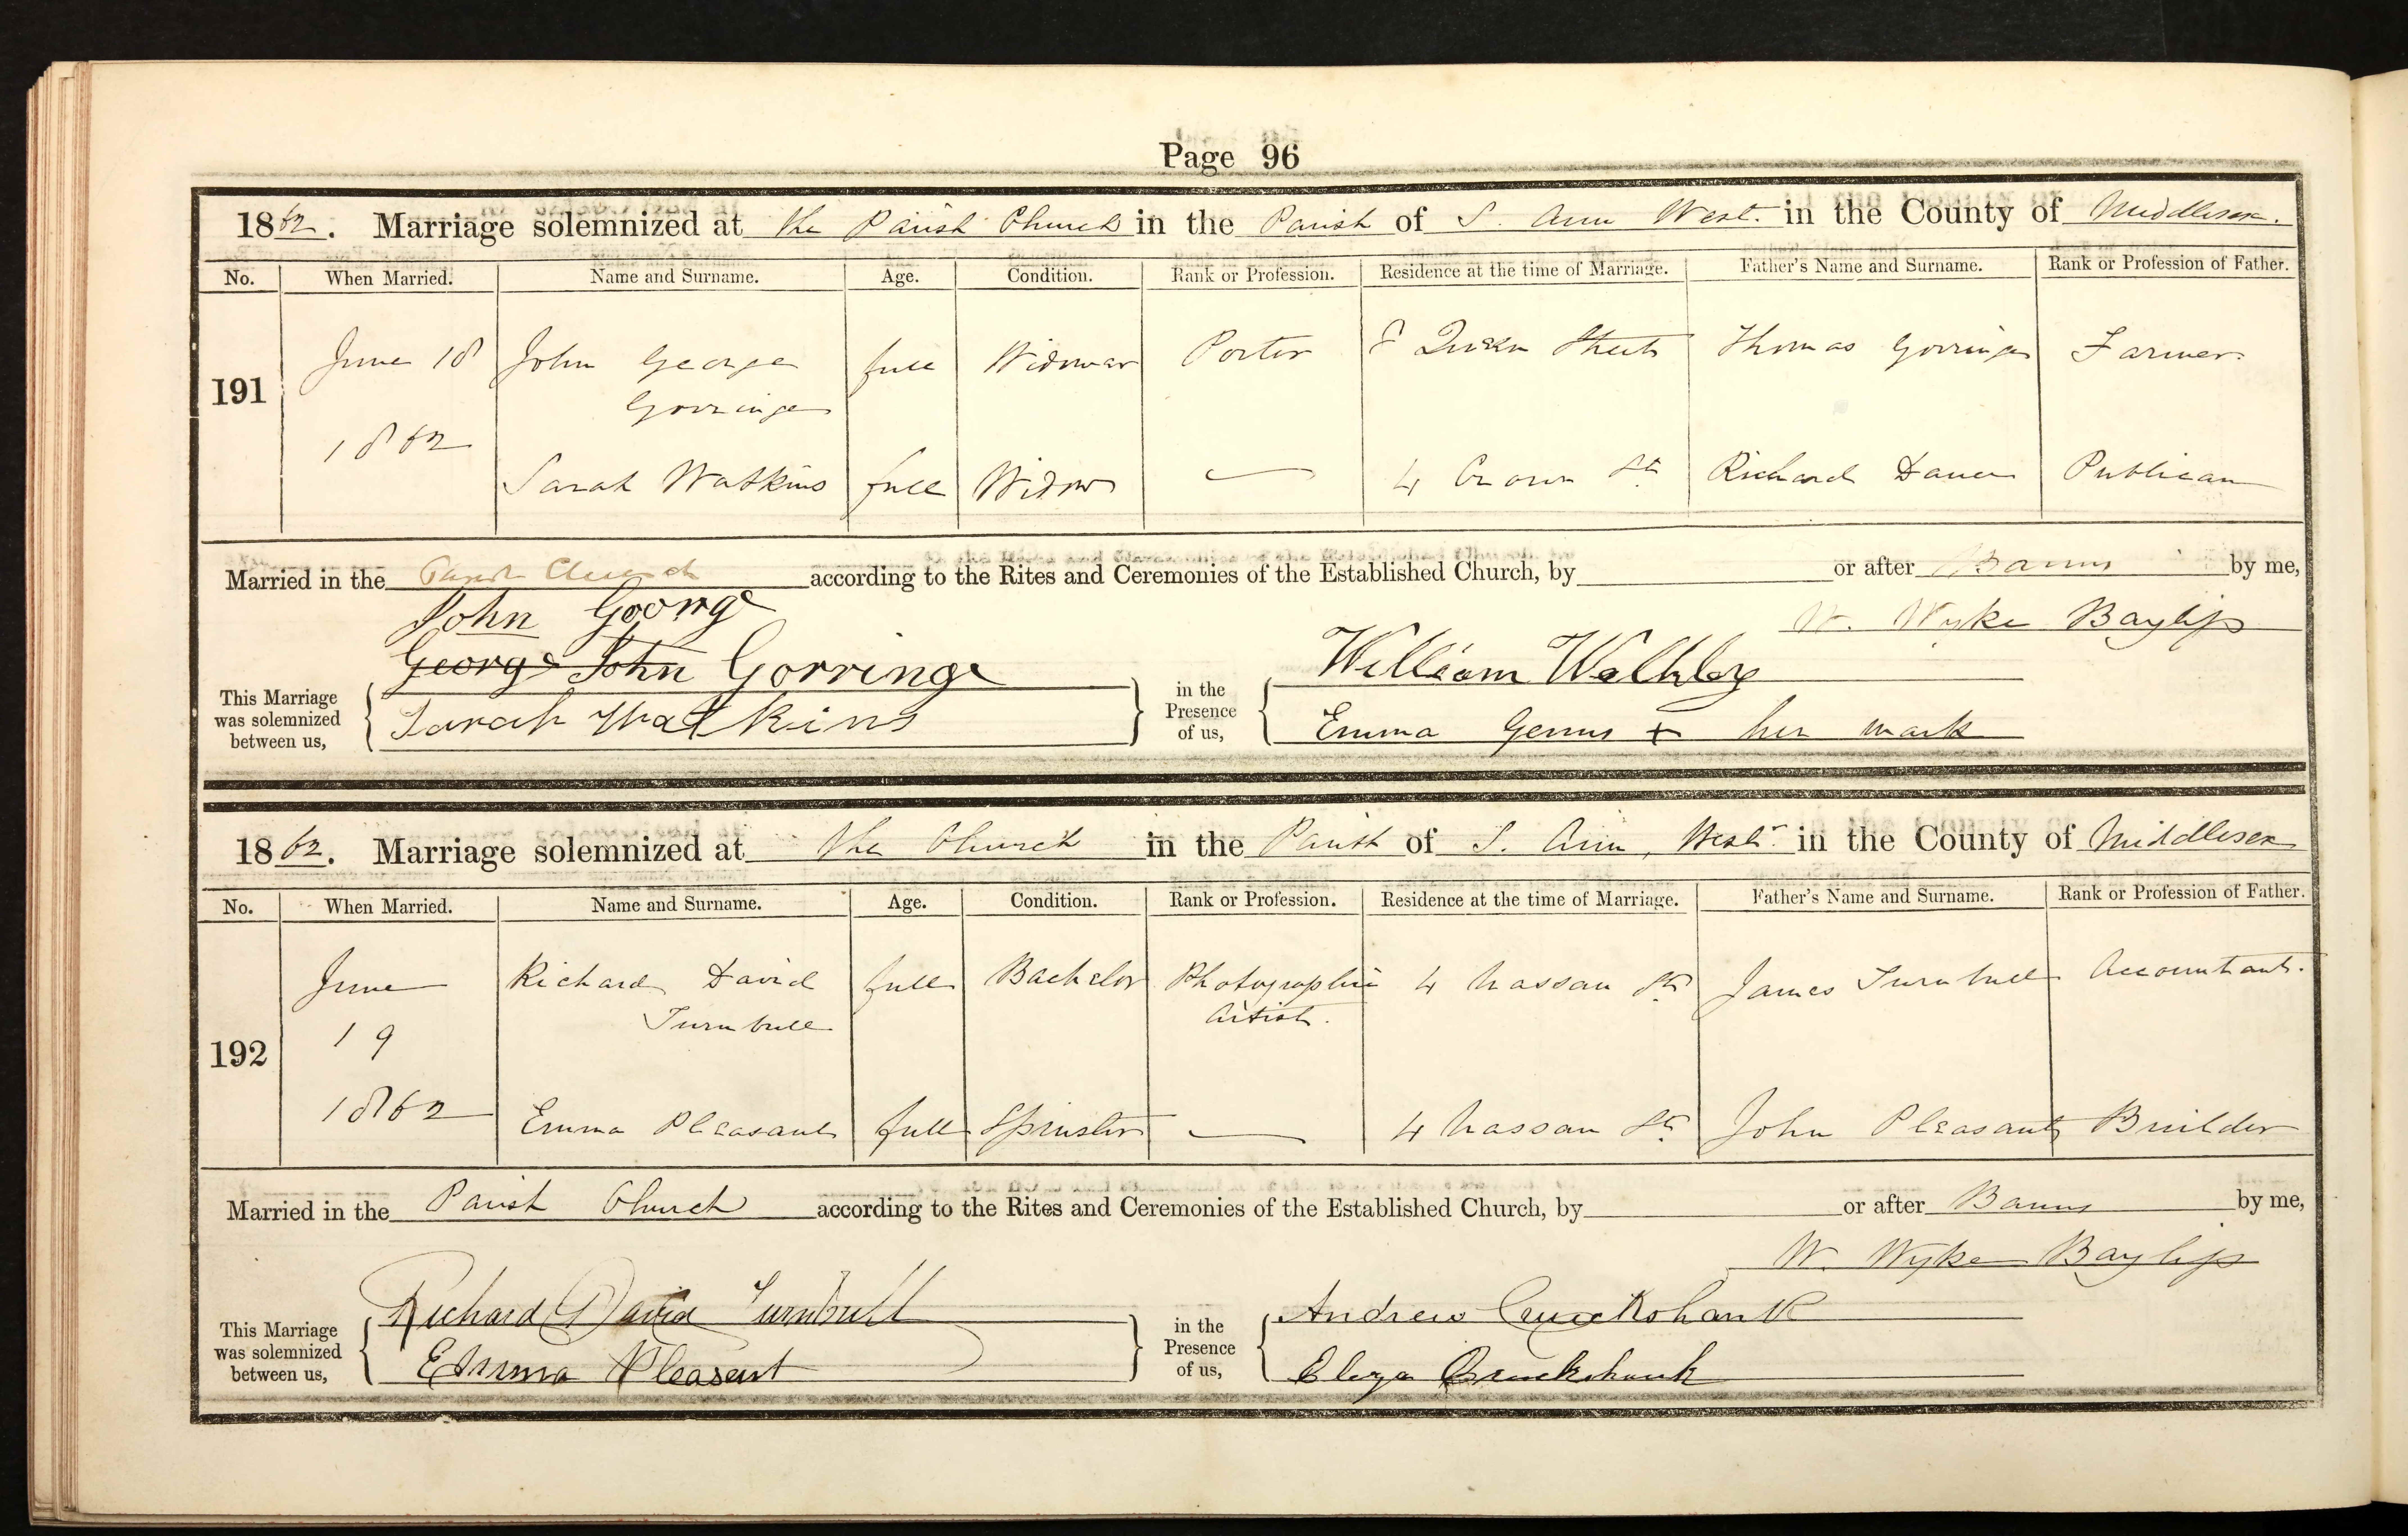 Page 96
1862. Marriage solemnized at the Parish Church in the Parish of S. Ann West. in the County of Middlesex.
No. When Married. Name and Surname. Age. Condition. Rank or Profession. Residence at the time of Marriage. Father's Name and Surname. Rank or Profession of Father.
191 June 18 John George full Widower Porter 8 Queen Street Thomas Gorringe Farmer
Gorringe
1862
Sarah Watkins full Widow — 4 Crown St Richard Publican
Married in the Parish Church according to the Rites and Ceremonies of the Established Church, by or after Banns by me,
John George
W. Wyke Bayliss
George John Gorringe
William
This Marriage was solemnized between us, in the Presence of us,
Sarah Watkins
Emma + her mark
1862. Marriage solemnized at the Church in the Parish of S. Ann, Westr in the County of Middlesex
No. When Married. Name and Surname. Age. Condition. Rank or Profession. Residence at the time of Marriage. Father's Name and Surname. Rank or Profession of Father.
192 June Richard David full Bachelor Photographic 4 Nassau St James Turnbull Accountant.
Turnbull Artist.
19
1862 Emma Pleasant full Spinster — 4 Nassau St John Pleasant Builder
Married in the Parish Church according to the Rites and Ceremonies of the Established Church, by or after Banns by me,
W. Wyke Bayliss
Richard David Turnbull
Andrew Cruickshank
This Marriage was solemnized between us, in the Presence of us,
Emma Pleasent
Eliza Cruickshank